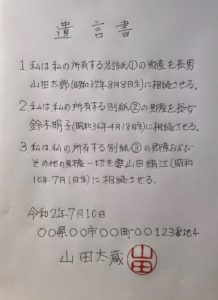 遺言書
1 私は私の所有する別紙①の財産を長男
山田太郎(昭和37年8月8日生)に相続させる。
2 私は私の所有する別紙②の財産を長女
鈴木明子(昭和36年4月18日生)に相続させる。
3 私は私の所有する別紙③の財産および
その他の財産一切を妻山田絹江(昭和
10年7月1日生)に相続させる。
令和2年7月10日
〇〇県〇〇市〇〇町〇〇123番地4
山田太蔵
山田